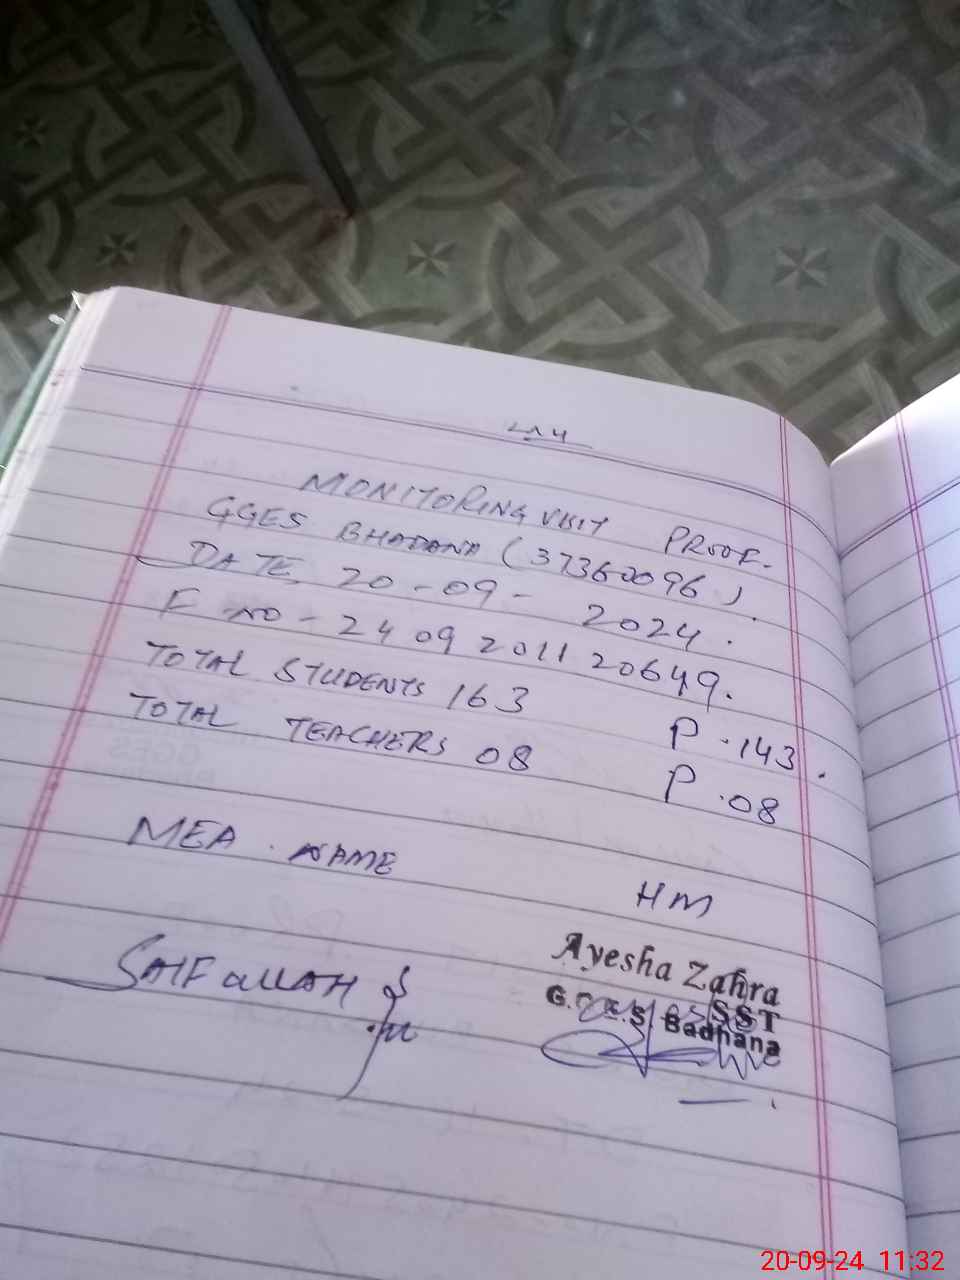 MONITORING VISIT PROOF.
GGES BHADANA (37360096).
DATE 20-09-2024.
F NO - 24 09 2011 20649.
TOTAL STUDENTS 163 P.143.
TOTAL TEACHERS 08 P.08
MEA. NAME
HM
SAIFULLAH
Ayesha Zahra
SST
Badhana
20-09-24 11:32